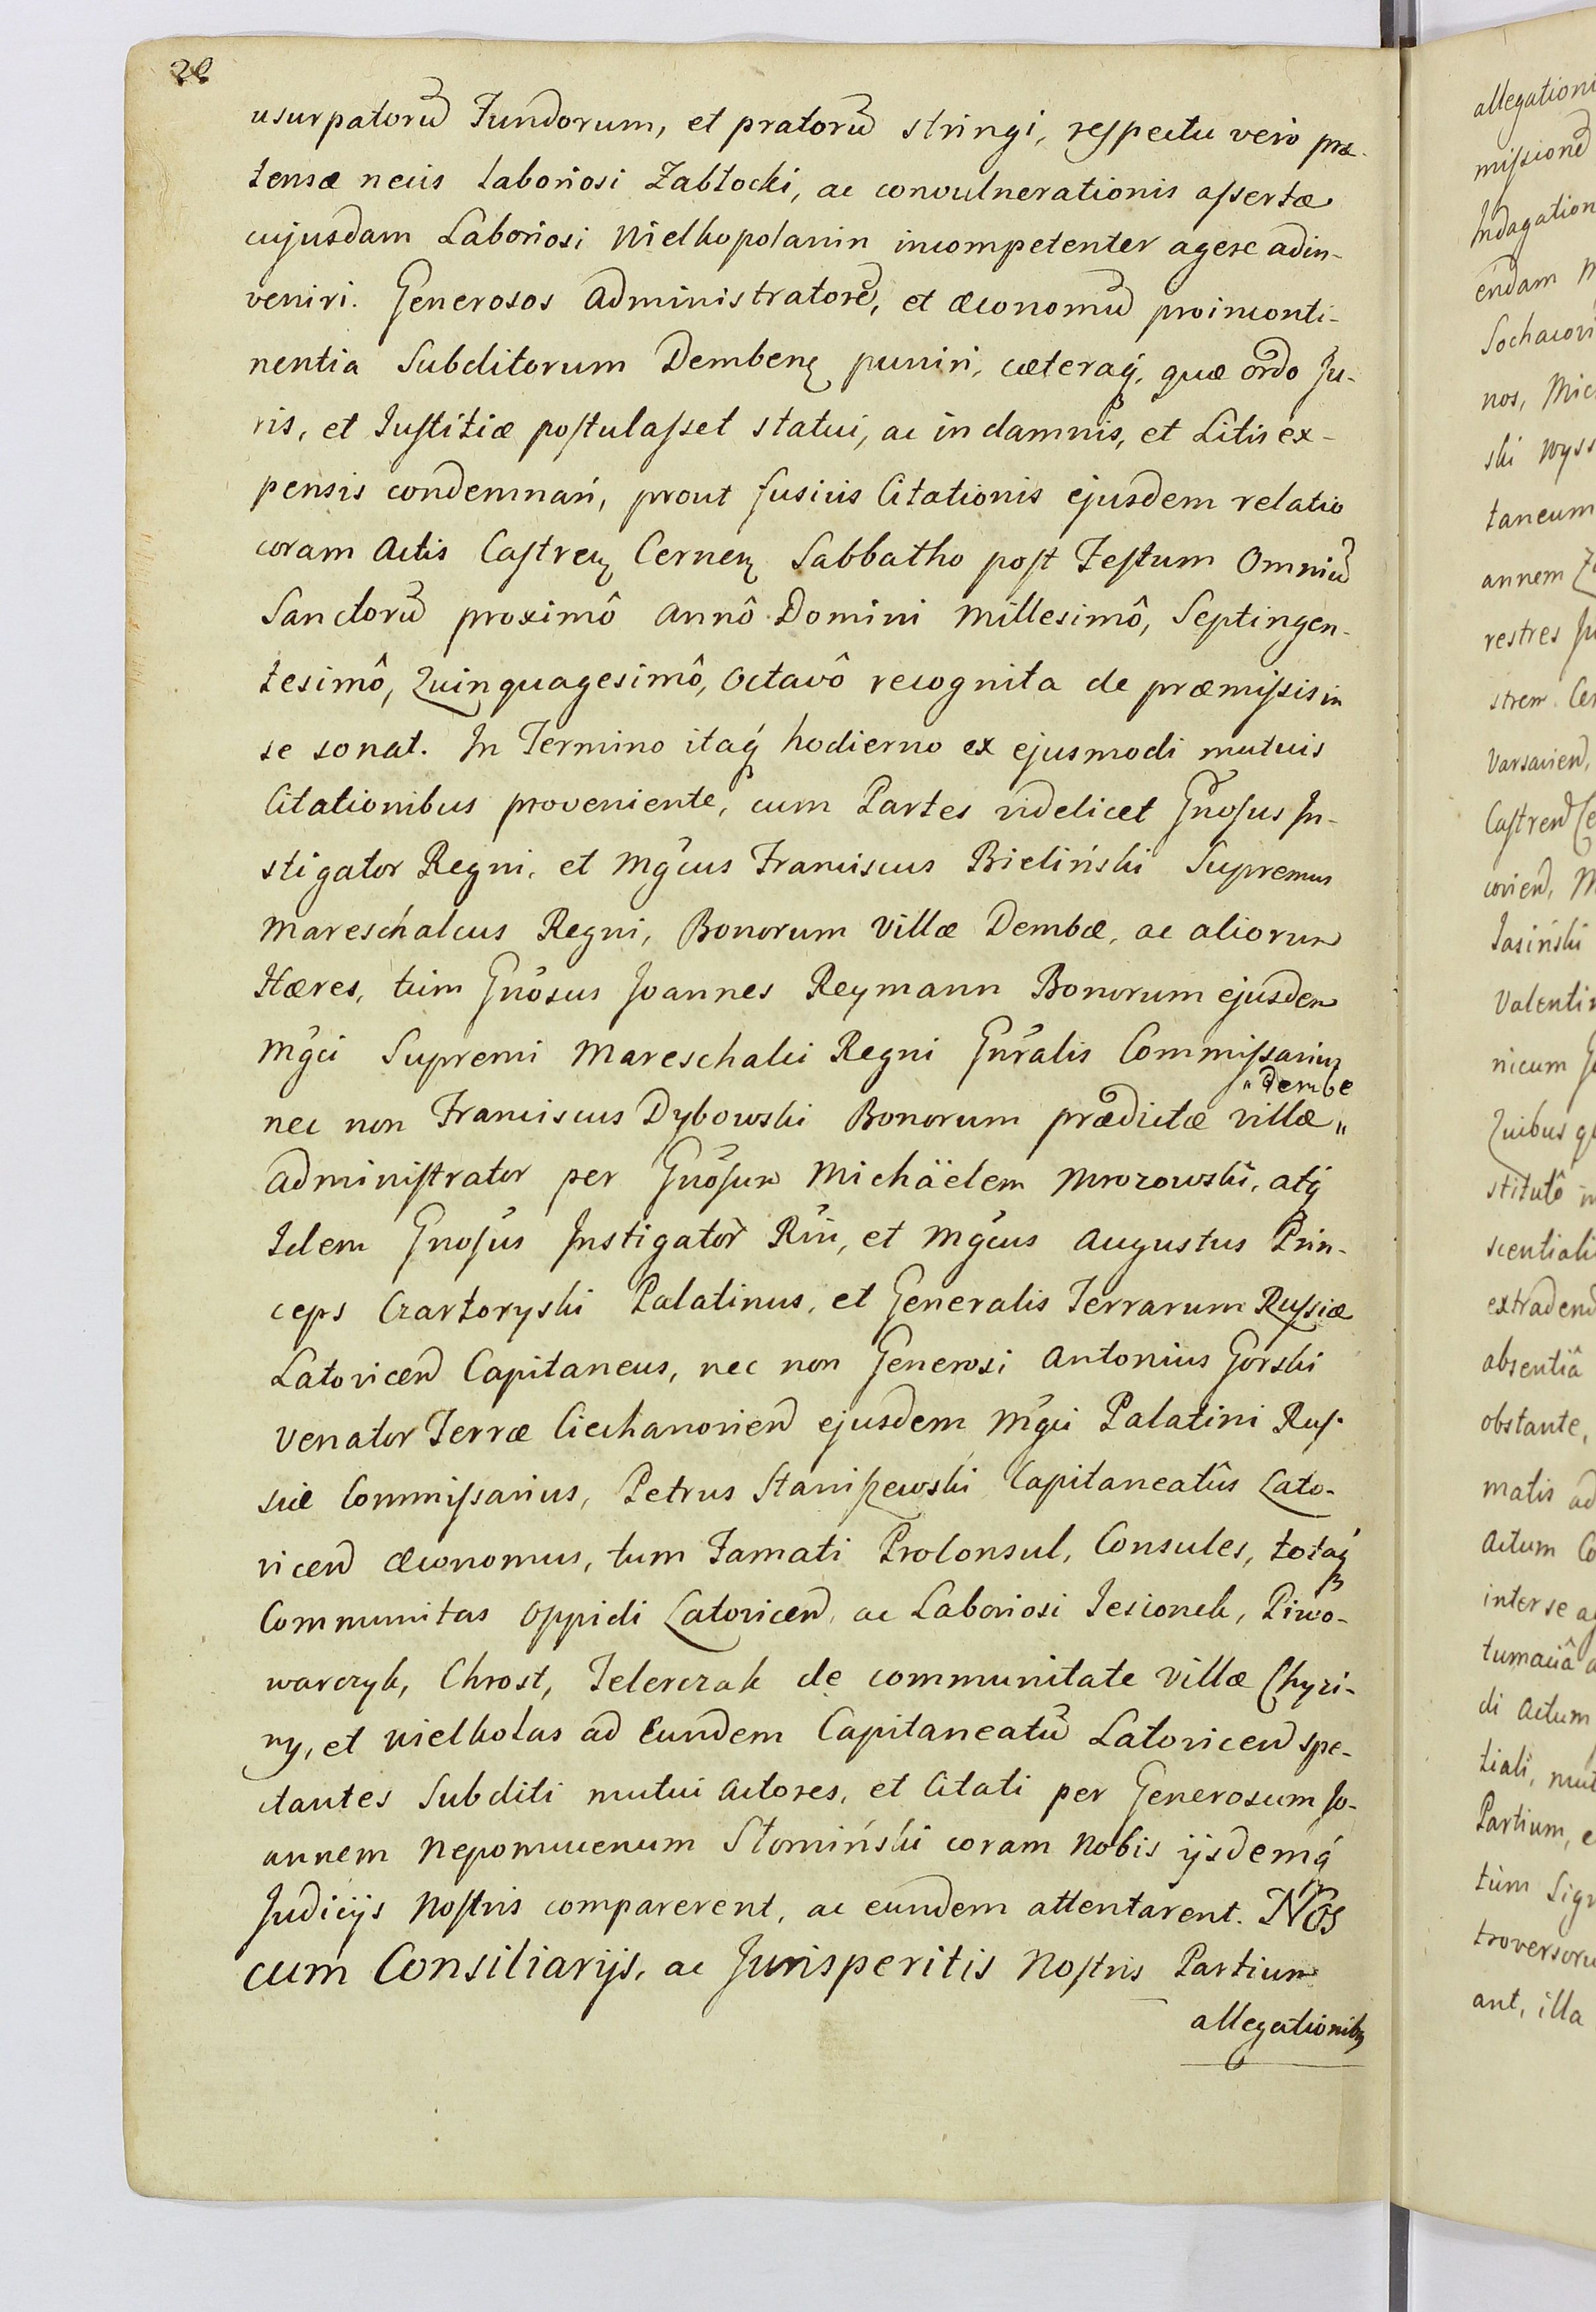 22
usurpatorũ Fundorum, et pratorũ stringi, respectu vero præ-
tensæ necis Laboriosi Zabłocki, ac convulnerationis assertæ
cujusdam Laboriosi Wielkopolanin incompetenter agere adin-
veniri. Generosos Administratorẽ, et Œconomũ pro incontinenti-
nentia Subditorum Dembenẓ puniri, cæteraq́, quæ ordo Ju-
ris, et Justitiæ postulasset statui, ac in damnis, et Litis ex-
pensis condemnari, prout fusius Citationis ejusdem relatio
coram Actis Castreñ Cerneñ Sabbatho post Festum Omniũ
Sanctorũ proximô Annô Domini Millesimô, Septingen-
tesimô, Quinquagesimô, Octavô recognita de præmissis in
se sonat. In Termino itaq́ hodierno ex ejusmodi mutuis
Citationibus proveniente, cum Partes videlicet Gnosus In-
stigator Regni, et Mgcus Franciscus Bieliński Supremus
Mareschalcus Regni, Bonorum Villæ Dembæ, ac aliorum
Hæres, tùm Gnosus Joannes Reymann Bonorum ejusdem
Mgci Supremi Mareschalci Regni Gnralis Commissarius
"Dembe
nec non Franciscus Dybowski Bonorum prædictæ villæ "
Administrator per Gnosum Michäelem Mrozowski, atq́
Idem Gnosus Instigator Rni, et Mgcus Augustus Prin-
ceps Czartoryski Palatinus, et Generalis Terrarum Russiæ
Latovicen̄ Capitaneus, nec non Generosi Antonius Gorski
Venator Terræ Ciechanovien̄ ejusdem Mgci Palatini Rus-
siæ Commissarius, Petrus Staniszewski Capitaneatûs Lato-
vicen̄ Œconomus, tum Famati Proconsul, Consules, totaq́
Communitas Oppidi Latovicen̄, ac Laboriosi Jesionek, Piwo-
warczyk, Chrost, Felerczak de communitate Villæ Chyzi-
ny, et Wielkolas ad Eundem Capitaneatũ Latovicen̄ spe-
ctantes Subditi mutui Actores, et Citati per Generosum Jo-
annem Nepomucenum Słomiński coram Nobis ijsdemq́
Judicijs Nostris comparerent, ac eundem attentarent. Nos
cum Consiliarijs, ac Jurisperitis Nostris Partium
allegationibꝰ